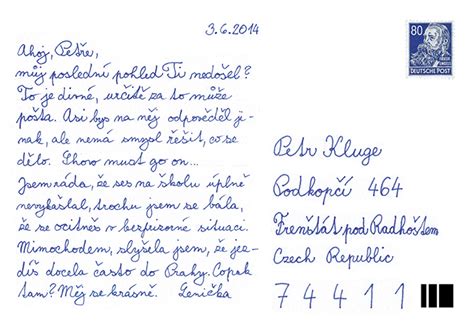 3.6.2014
Ahoj, Petře,
můj poslední pohled Ti nedošel?
To je divné, určitě za to může
pošta. Asi bys na něj odpověděl ji-
nak, ale nemá smysl řešit, co se
dělo. Show must go on...
Jsem ráda, že ses na školu úplně
nevykašlal, trochu jsem se bála,
že se ocitneš v bezfuzorné situaci.
Mimochodem, slyšela jsem, že jez-
díš docela často do Prahy. Copak
tam? Měj se krásně. Lenička
80
DEUTSCHE POST
Petr Kluge
Podkopčí 464
Frenštát pod Radhoštem
Czech Republic
74411